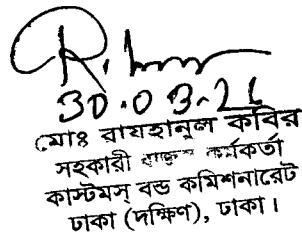 30.03-26
মোঃ রাযহানুল কবির
সহকারী রাজস্ব কর্মকর্তা
কাস্টমস্ বন্ড কমিশনারেট
ঢাকা (দক্ষিণ), ঢাকা।